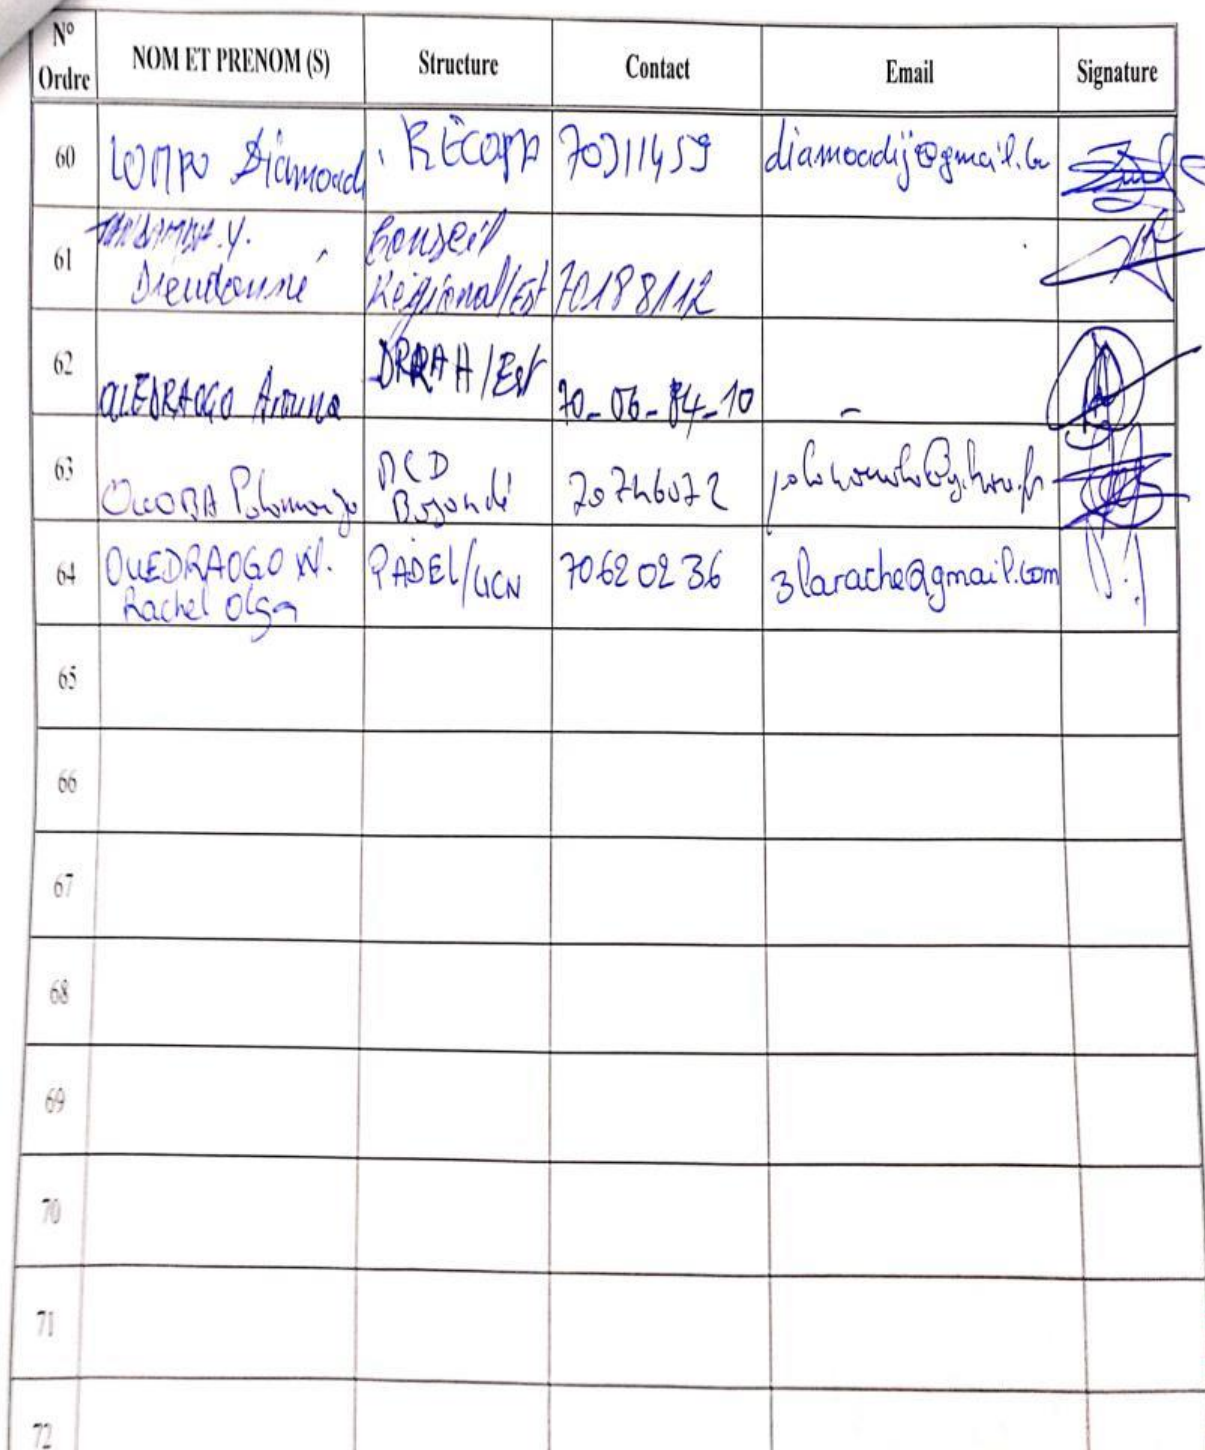 N° Ordre NOM ET PRENOM (S) Structure Contact Email Signature
60 LOMPO Diamoadi RECOPA 70311459 diamoadij@gmail.
61 Y. Dieudonné Conseil Régional/Est 70188112
62 OUEDRAOGO Arouna DRRAH/Est 70-06-84-10 –
63 OUOBA MCD Bogandé 70746072
64 OUEDRAOGO W. Rachel Olga PADEL/UCN 70620236 3larache@gmail.com
65
66
67
68
69
70
71
72